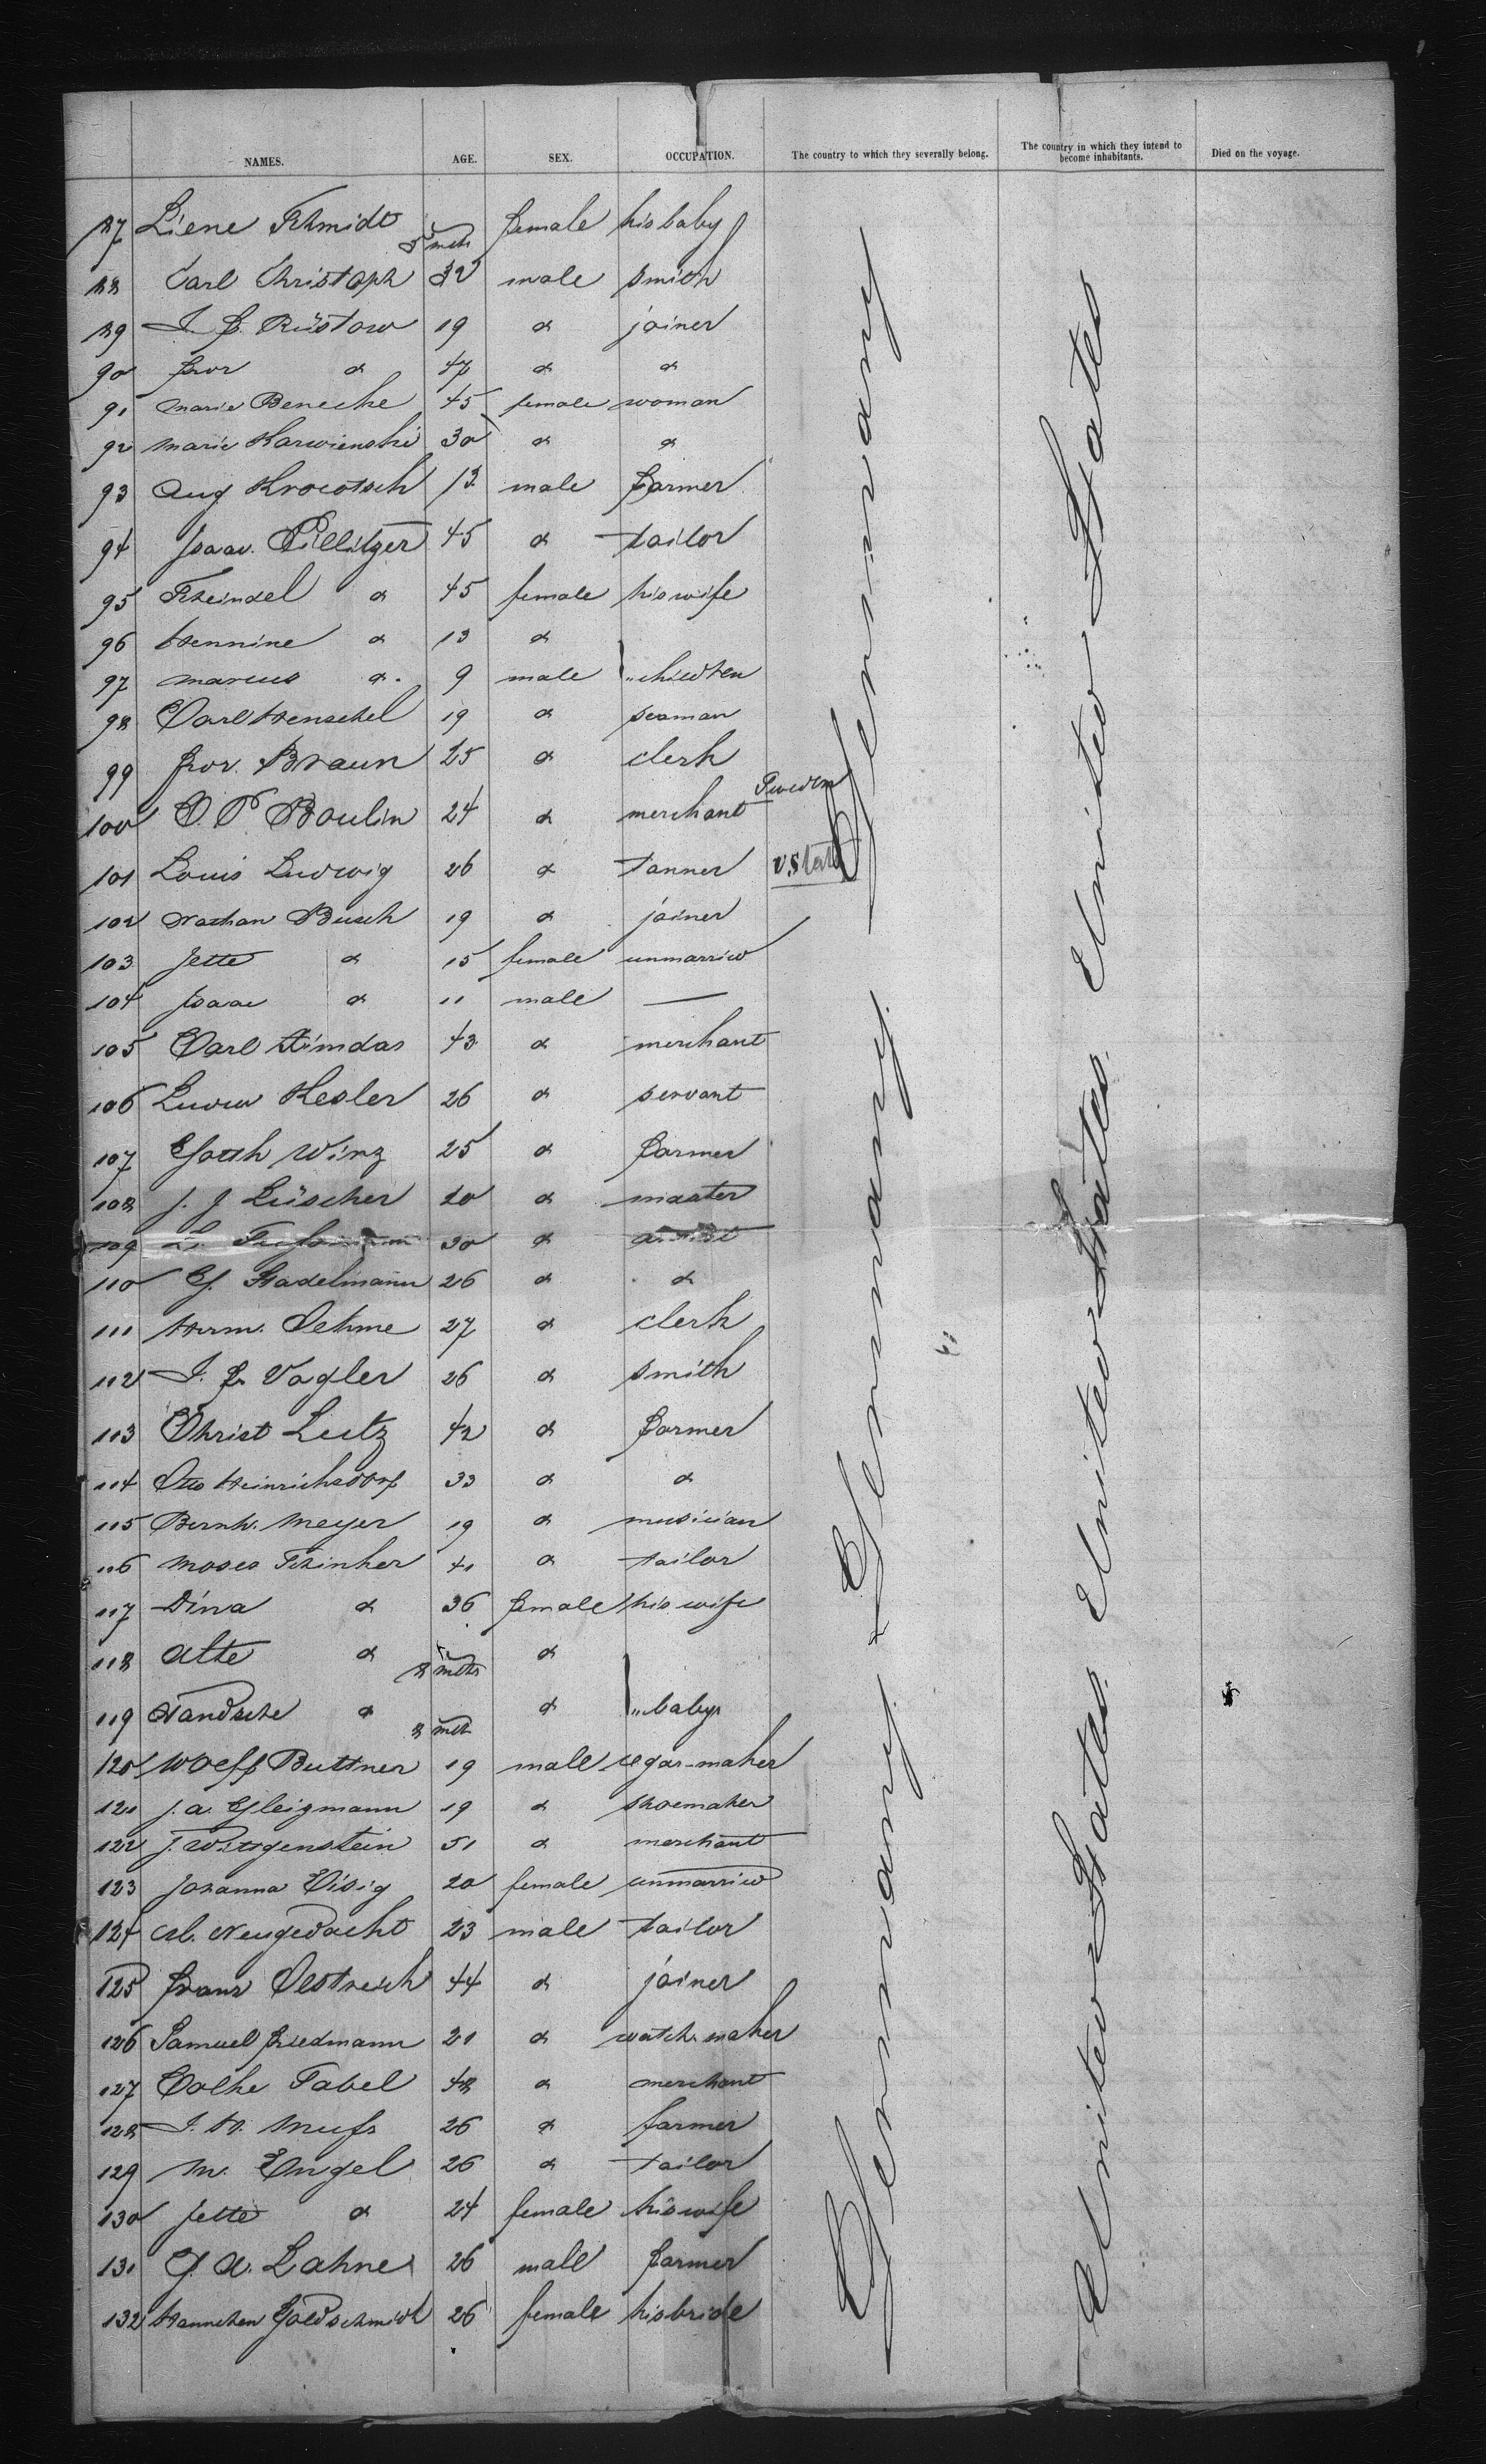 NAMES. AGE. SEX. OCCUPATION. The country to which they severally belong. The country in which they intend to become inhabitants. Died on the voyage.
87 Liene Schmidt 5 mth female his baby
88 Carl Christoph 32 male smith
89 J. F. Rüstow 19 d joiner
90 d 47 d d
91 Marie Benecke 45 female woman
92 Marie Karwienski 30 d d
93 Aug 13 male farmer
94 Isaac Pillitzer 45 d tailor
95 Scheindel d 45 female his wife
96 Hennine d 13 d
97 Marcus d. 9 male " children
98 Carl Henschel 19 d seaman
99 Braun 25 d clerk
100 O. P. Boulin 24 d merchant Sweden
101 Louis Ludwig 26 d tanner U State
102 Nathan Busch 19 d joiner
103 Jette d 15 female unmarried
104 Isaac d 11 male —
105 Carl Aimdas 43 d merchant
106 Kesler 26 d servant
107 Wirz 25 d farmer
108 J. J. Lüscher 20 d master
109 30 d artist
110 G. Stadelmann 26 d d
111 Herm. Oehme 27 d clerk
112 J. F. Vogler 26 d smith
113 Christ Lutz 42 d farmer
114 Otto Heinrichsdorf 33 d d
115 Bernh. Meyer 19 d musician
116 Moses Schinker 41 d tailor
117 Dina d 36 female his wife
118 Alte d mths d
119 d 8 mth d " babys
120 Wolff Buttner 19 male segar-maker
121 J. A. Gleizmann 19 d shoemaker
122 J. Wittgenstein 51 d merchant
123 Johanna Eisig 20 female unmarried
124 M. Neugedacht 23 male tailor
125 Franz Oestreich 44 d joiner
126 Samuel Friedmann 21 d watch maker
127 Tabel 48 d merchant
128 J. H. Mufs 26 d farmer
129 M. Engel 26 d tailor
130 Jette d 24 female his wife
131 G. A. Lahne 26 male farmer
132 Hannchen Goldschmidt 26 female his bride
Germany Germany Germany
United States United States United States